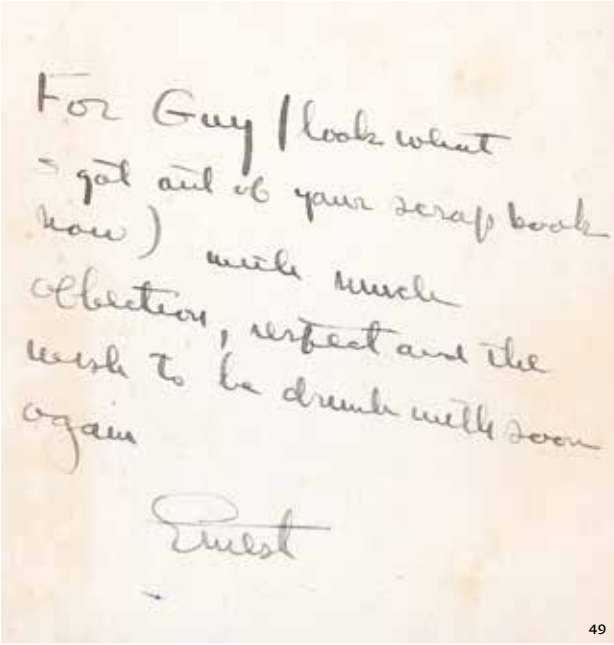 For Guy (look what
I got out of your scrap book
now) with much
affection, respect and the
wish to be drunk with soon
again
Ernest
49